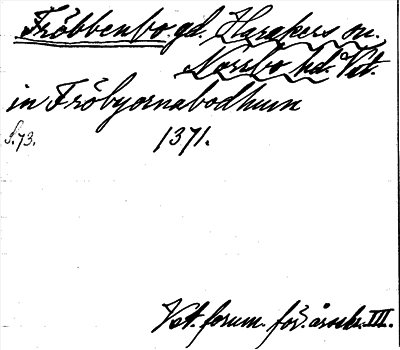 Fröbbenbo gd. Harakers sn.
Norrbo hd. Vst.
in Fröbyornabodhum
S. 73. 1371.
Vst. fornm. för. årsskr. III.